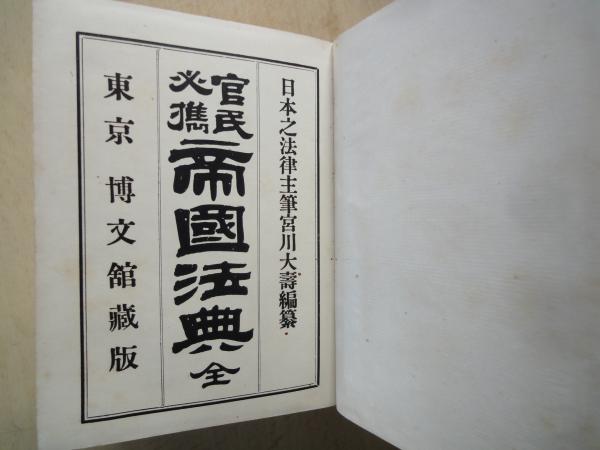 日本之法律主筆宮川大壽編纂
官民必攜
帝國法典全
東京博文館藏版